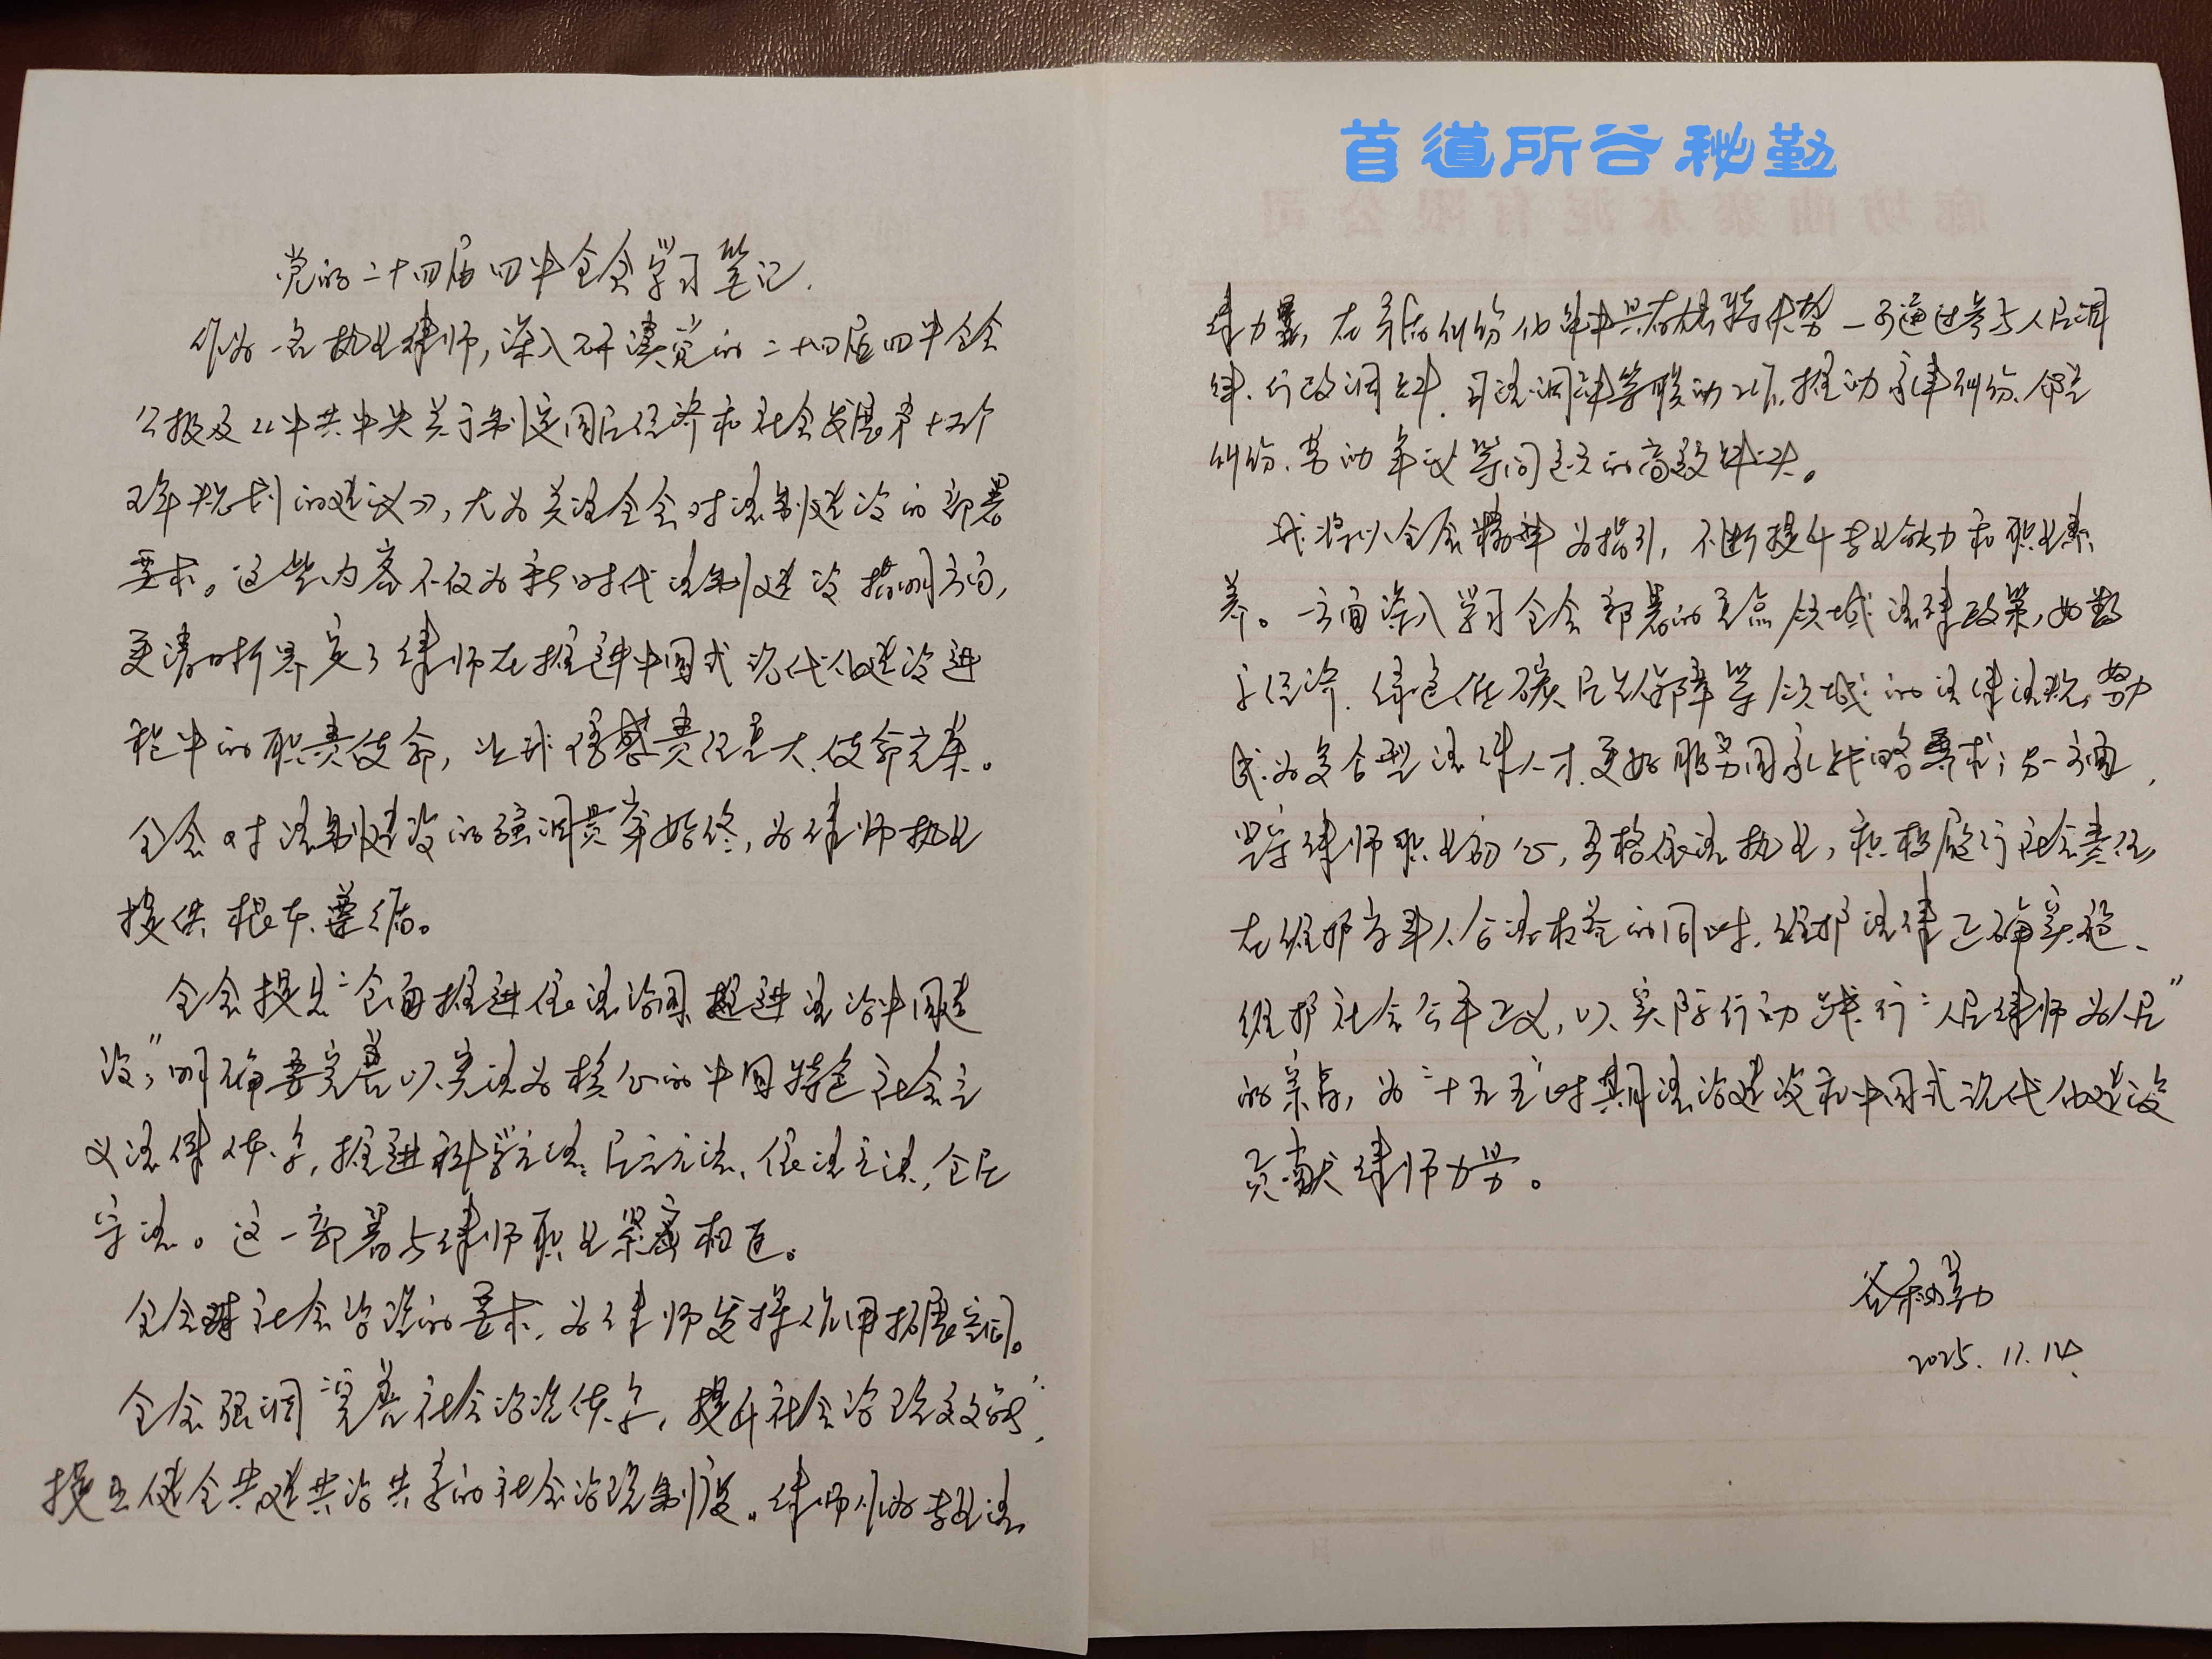 党的二十四届四中全会学习笔记.
作为一名执业律师,深入研读党的二十四届四中全会
公报及《中共中央关于制定国民经济和社会发展第十五个
五年规划的建议》,尤为关注全会对法制建设的部署
要求。这些内容不仅为新时代法制建设指明方向,
更清晰界定了律师在推进中国式现代化建设进
程中的职责使命,让我倍感责任重大、使命光荣。
全会对法制建设的强调贯穿始终,为律师执业
提供根本遵循。
全会提出“全面推进依法治国 推进法治中国建
设”,明确要完善以宪法为核心的中国特色社会主
义法律体系,推进科学立法、民主立法、依法立法,全民
守法。这一部署与律师职业紧密相连。
全会对社会治理的要求,为律师发挥作用拓展空间。
全会强调“完善社会治理体系,提升社会治理效能”,
提出健全共建共治共享的社会治理制度。律师作为专业法
律力量,在矛盾纠纷化解中具有独特优势—可通过参与人民调
解、行政调解、司法调解等联动工作,推动家事纠纷、邻里
纠纷、劳动争议等问题的高效解决。
我将以全会精神为指引,不断提升专业能力和职业素
养。一方面深入学习全会部署的重点领域法律政策,如数
字经济、绿色低碳、民生保障等领域的法律法规,努力
成为复合型法律人才,更好服务国家战略要求;另一方面,
坚守律师职业初心,严格依法执业,积极履行社会责任,
在维护当事人合法权益的同时,维护法律正确实施、
维护社会公平正义,以实际行动践行“人民律师为人民”
的宗旨,为“十五五”时期法治建设和中国式现代化建设
贡献律师力量。
谷秘勤
2025.11.14
首道所谷秘勤
廊坊曲寨水泥有限公司